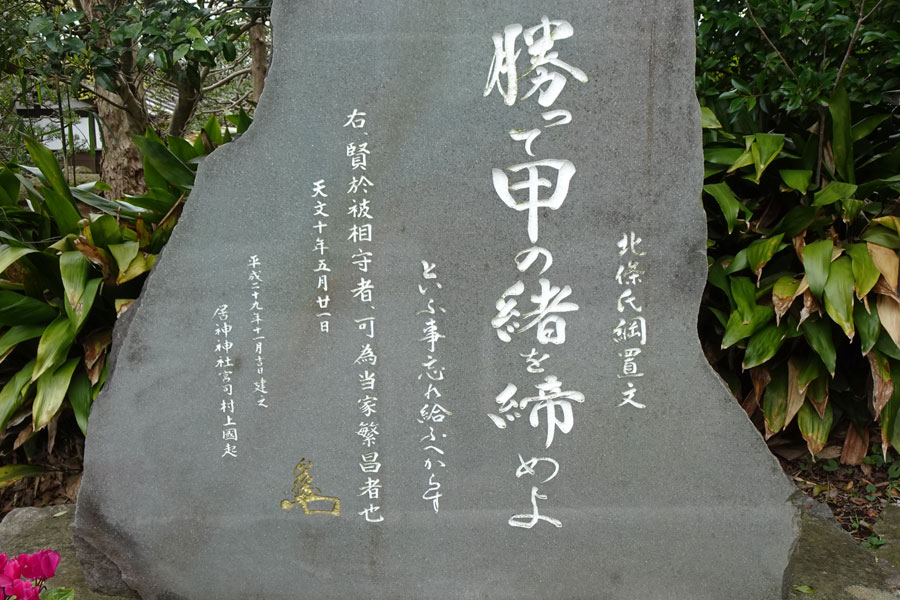 北條氏綱置文
勝って甲の緒を締めよ
といふ事忘れ給ふへからす
右、賢於被相守者、可為当家繁昌者也
天文十年五月廿一日
平成二十九年十一月吉日建之
居神神社宮司村上國起